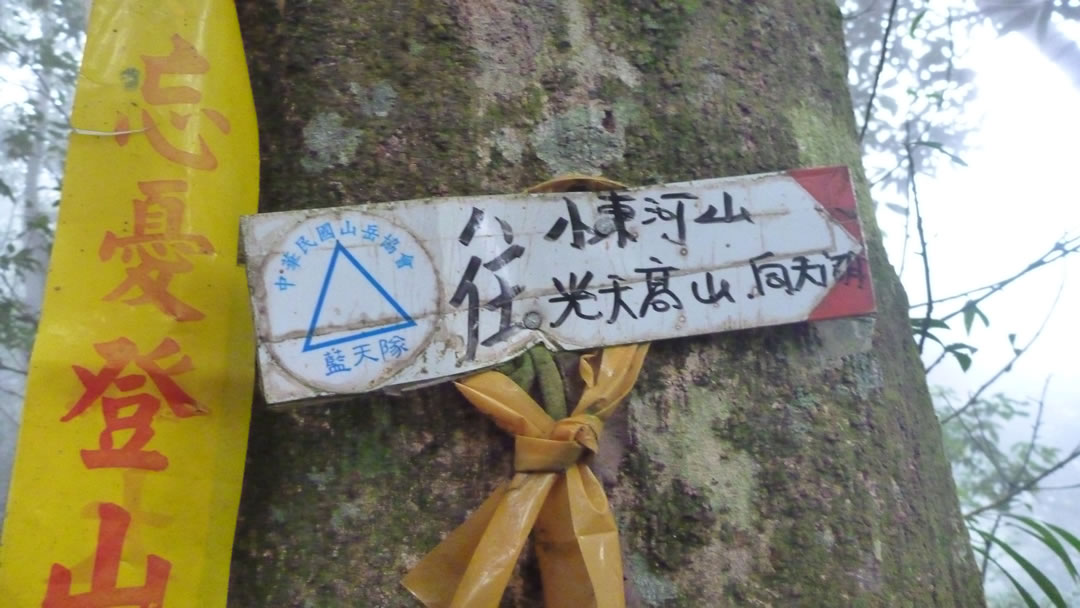 忘憂登山
中華民國山岳協會
藍天隊
往
小東河山
光天高山 向天湖